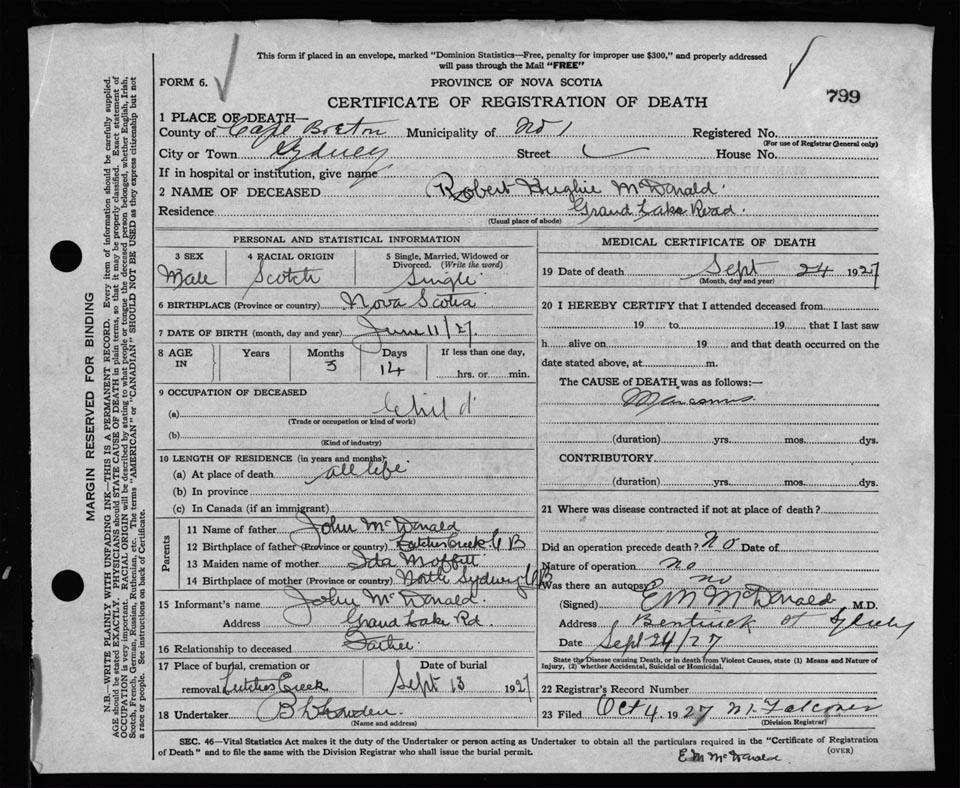 This form if placed in an envelope, marked "Dominion Statistics—Free, penalty for improper use $300," and properly addressed
will pass through the Mail "FREE"
FORM 6.
PROVINCE OF NOVA SCOTIA
799
CERTIFICATE OF REGISTRATION OF DEATH
1 PLACE OF DEATH—
County of Cape Breton Municipality of No 1 Registered No.
(For use of Registrar General only)
City or Town Sydney Street House No.
If in hospital or institution, give name
2 NAME OF DECEASED Robert Hughie McDonald
Residence Grand Lake Road.
(Usual place of abode)
PERSONAL AND STATISTICAL INFORMATION
3 SEX Male
4 RACIAL ORIGIN Scotch
5 Single, Married, Widowed or
Divorced. (Write the word)
Single
6 BIRTHPLACE (Province or country) Nova Scotia
7 DATE OF BIRTH (month, day and year) June 11/27.
8 AGE IN
Years
Months 3
Days 14
If less than one day,
hrs. or min.
9 OCCUPATION OF DECEASED
(a) Child
(Trade or occupation or kind of work)
(b)
(Kind of industry)
10 LENGTH OF RESIDENCE (in years and months)
(a) At place of death all life
(b) In province
(c) In Canada (if an immigrant)
Parents
11 Name of father John McDonald
12 Birthplace of father (Province or country) Leitches Creek C B
13 Maiden name of mother Ida Moffitt
14 Birthplace of mother (Province or country) North Sydney CB
15 Informant's name John McDonald.
Address Grand Lake Rd.
16 Relationship to deceased Father
17 Place of burial, cremation or
removal Leitches Creek
Date of burial
Sept 13 1927
18 Undertaker
(Name and address)
MEDICAL CERTIFICATE OF DEATH
19 Date of death Sept 24 1927
(Month, day and year)
20 I HEREBY CERTIFY that I attended deceased from
19 to 19 that I last saw
h alive on 19 and that death occurred on the
date stated above, at m.
The CAUSE of DEATH was as follows:—
Marasmus
(duration) yrs. mos. dys.
CONTRIBUTORY
(duration) yrs. mos. dys.
21 Where was disease contracted if not at place of death?
Did an operation precede death? No Date of
Nature of operation no
Was there an autopsy no
(Signed) E M McDonald M.D.
Address Bentinck St Sydney
Date Sept 24/27
State the Disease causing Death, or in death from Violent Causes, state (1) Means and Nature of
Injury, (2) whether Accidental, Suicidal or Homicidal.
22 Registrar's Record Number
23 Filed Oct 4 1927 Falconer
(Division Registrar)
SEC. 46—Vital Statistics Act makes it the duty of the Undertaker or person acting as Undertaker to obtain all the particulars required in the "Certificate of Registration
of Death" and to file the same with the Division Registrar who shall issue the burial permit.
(OVER)
E M McDonald
MARGIN RESERVED FOR BINDING
N.B.—WRITE PLAINLY WITH UNFADING INK—THIS IS A PERMANENT RECORD. Every item of information should be carefully supplied.
AGE should be stated EXACTLY. PHYSICIANS should STATE CAUSE OF DEATH in plain terms, so that it may be properly classified. Exact statement of
OCCUPATION is very important. RACIAL ORIGIN will be described by stating to what people or tongue the deceased person belonged, whether English, Irish,
Scotch, French, German, Russian, Ruthenian, etc. The terms "AMERICAN" or "CANADIAN" SHOULD NOT BE USED as they express citizenship but not
a race or people. See instructions on back of Certificate.